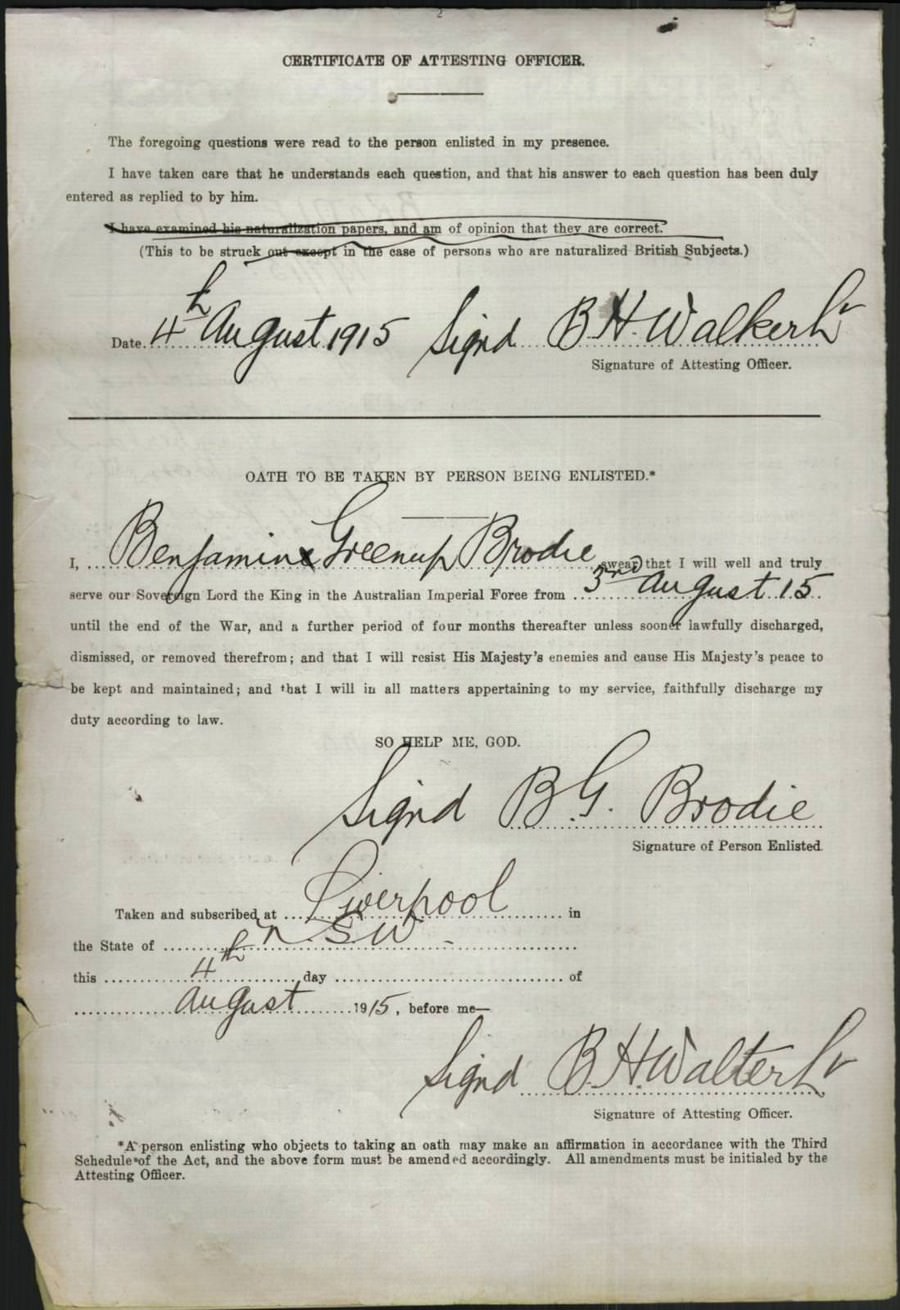 2
CERTIFICATE OF ATTESTING OFFICER.
The foregoing questions were read to the person enlisted in my presence.
I have taken care that he understands each question, and that his answer to each question has been duly
entered as replied to by him.
I have examined his naturalization papers, and am of opinion that they are correct.
(This to be struck out except in the case of persons who are naturalized British Subjects.)
Date 4th August 1915 Signd B H. Walker Lr
Signature of Attesting Officer.
OATH TO BE TAKEN BY PERSON BEING ENLISTED.*
I, Benjamin Greenup Brodie swear that I will well and truly
serve our Sovereign Lord the King in the Australian Imperial Force from 3rd August 15
until the end of the War, and a further period of four months thereafter unless sooner lawfully discharged,
dismissed, or removed therefrom; and that I will resist His Majesty's enemies and cause His Majesty's peace to
be kept and maintained; and that I will in all matters appertaining to my service, faithfully discharge my
duty according to law.
SO HELP ME, GOD.
Signd B G. Brodie
Signature of Person Enlisted.
Taken and subscribed at Liverpool in
the State of N.S.W.
this 4th day of
August 1915, before me—
Signd B. H. Walter Lr
Signature of Attesting Officer.
*A person enlisting who objects to taking an oath may make an affirmation in accordance with the Third
Schedule of the Act, and the above form must be amended accordingly. All amendments must be initialed by the
Attesting Officer.